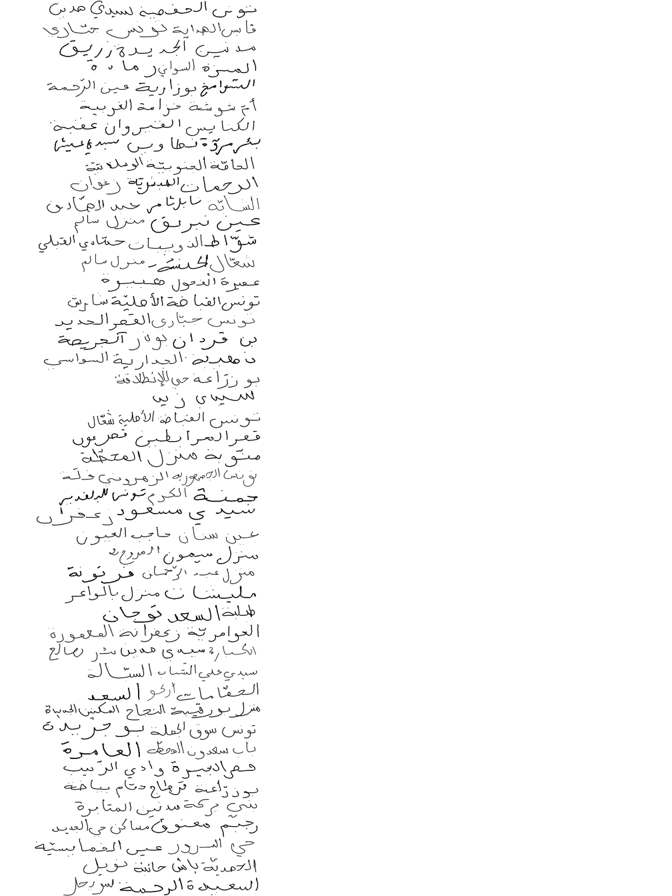 تونس الحفصية لسيدي مدين
فاس الهداية تونس حشاد
مدنين الجديدة زريق
الميزة السواني رمادة
الشوامخ بوزارية عين الرحمة
أم شوشة حزامة الغربية
الكنايس القيروان عقبة
بئر مروة تطاوين سيدي عيش
العافية الجنوبية
الرحمات زغوان
نابل ثامر عبد الصادق
عين نبريق منزل سالم
شواط الذويبات حمادي القبلي
شعال الخنشة منزل سالم
عميرة الفحول هبيرة
تونس القباضة الأصلية شارق
تونس حباري القصر الجديد
بن قردان نوار الجريصة
ذهيبة الجدارية السواسي
بوزراعة حي الإنطلاقة
سيدي زيد
تونس القباضة الأصلية شعال
قصر المرابطين قصر بون
منوبة منزل المحطة
تونس الجمهورية الزهروني
جمنة الكرم تونس البلفدير
سيدي مسعود زعفران
عين سنان حاجب العيون
منزل ميمون المروج
منزل عبد الرحمان فرتونة
مليشات منزل بالواعر
طلبة السعد توجان
العوامرية زعفرانة المعمورة
الكبارة سيدي مدين بئر صالح
سيدي علي الشباب الستالة
الحمامات أركو السعد
منزل بورقيبة النجاح المكنين الجديدة
تونس سوق الجملة بوجريدة
باب سعدون المحطة العامرة
قصر الجيرة وادي الزبيب
بوزراعة قرطاج حمام بياضة
بني بركة مدنين المثابرة
رجيم معتوق مساكن حي الجديد
حي السرور عين الخمايسية
الحمدية باش حانبة نويل
السعيدة الرحمة